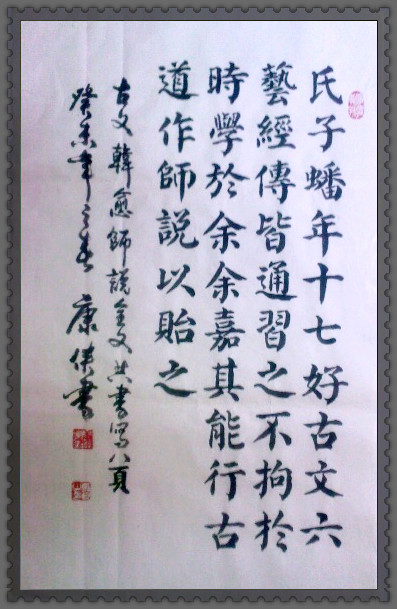 氏子蟠年十七好古文六
藝經傳皆通習之不拘於
時學於余余嘉其能行古
道作師說以貽之
古文韓愈師說全文共書寫八頁
癸未年之春 康 書